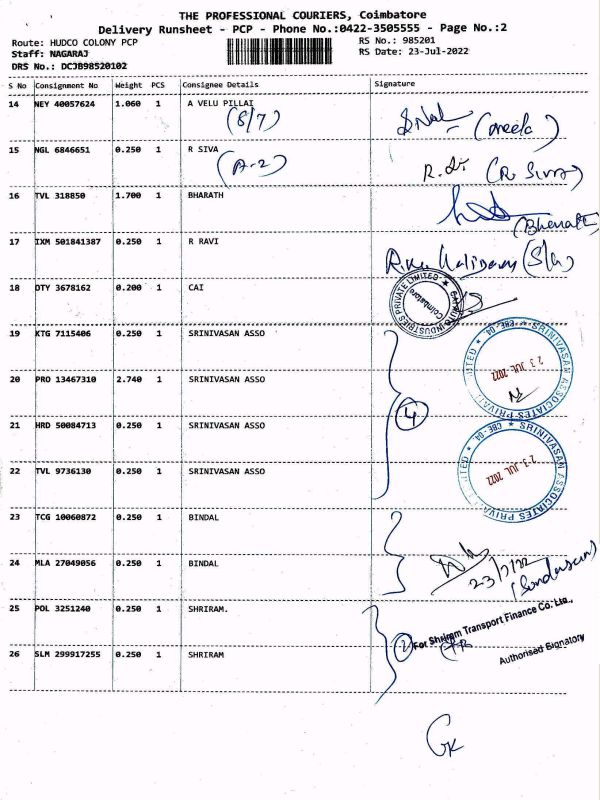 THE PROFESSIONAL COURIERS, Coimbatore
Delivery Runsheet - PCP - Phone No.:0422-3505555 - Page No.:2
Route: HUDCO COLONY PCP RS No.: 985201
Staff: NAGARAJ RS Date: 23-Jul-2022
DRS No.: DCJB98520102
S No Consignment No Weight PCS Consignee Details Signature
14 NEY 40057624 1.060 1 A VELU PILLAI
(8/7)
15 NGL 6846651 0.250 1 R SIVA (R. Siva)
(A-2)
16 TVL 318850 1.700 1 BHARATH
(Bharath)
17 IXM 501841387 0.250 1 R RAVI
18 DTY 3678162 0.200 1 CAI
INDUSTRIES PRIVATE LIMITED
Coimbatore
19 KTG 7115406 0.250 1 SRINIVASAN ASSO
SRINIVASAN ASSOCIATES PRIVATE LIMITED
23 JUL 2022
20 PRO 13467310 2.740 1 SRINIVASAN ASSO
4
21 HRD 50084713 0.250 1 SRINIVASAN ASSO
SRINIVASAN ASSOCIATES PRIVATE LIMITED
23 JUL 2022
22 TVL 9736130 0.250 1 SRINIVASAN ASSO
23 TCG 10060872 0.250 1 BINDAL
24 MLA 27049056 0.250 1 BINDAL
23/7/22
25 POL 3251240 0.250 1 SHRIRAM.
2 For Shriram Transport Finance Co. Ltd.,
26 SLM 299917255 0.250 1 SHRIRAM
Authorised Signatory